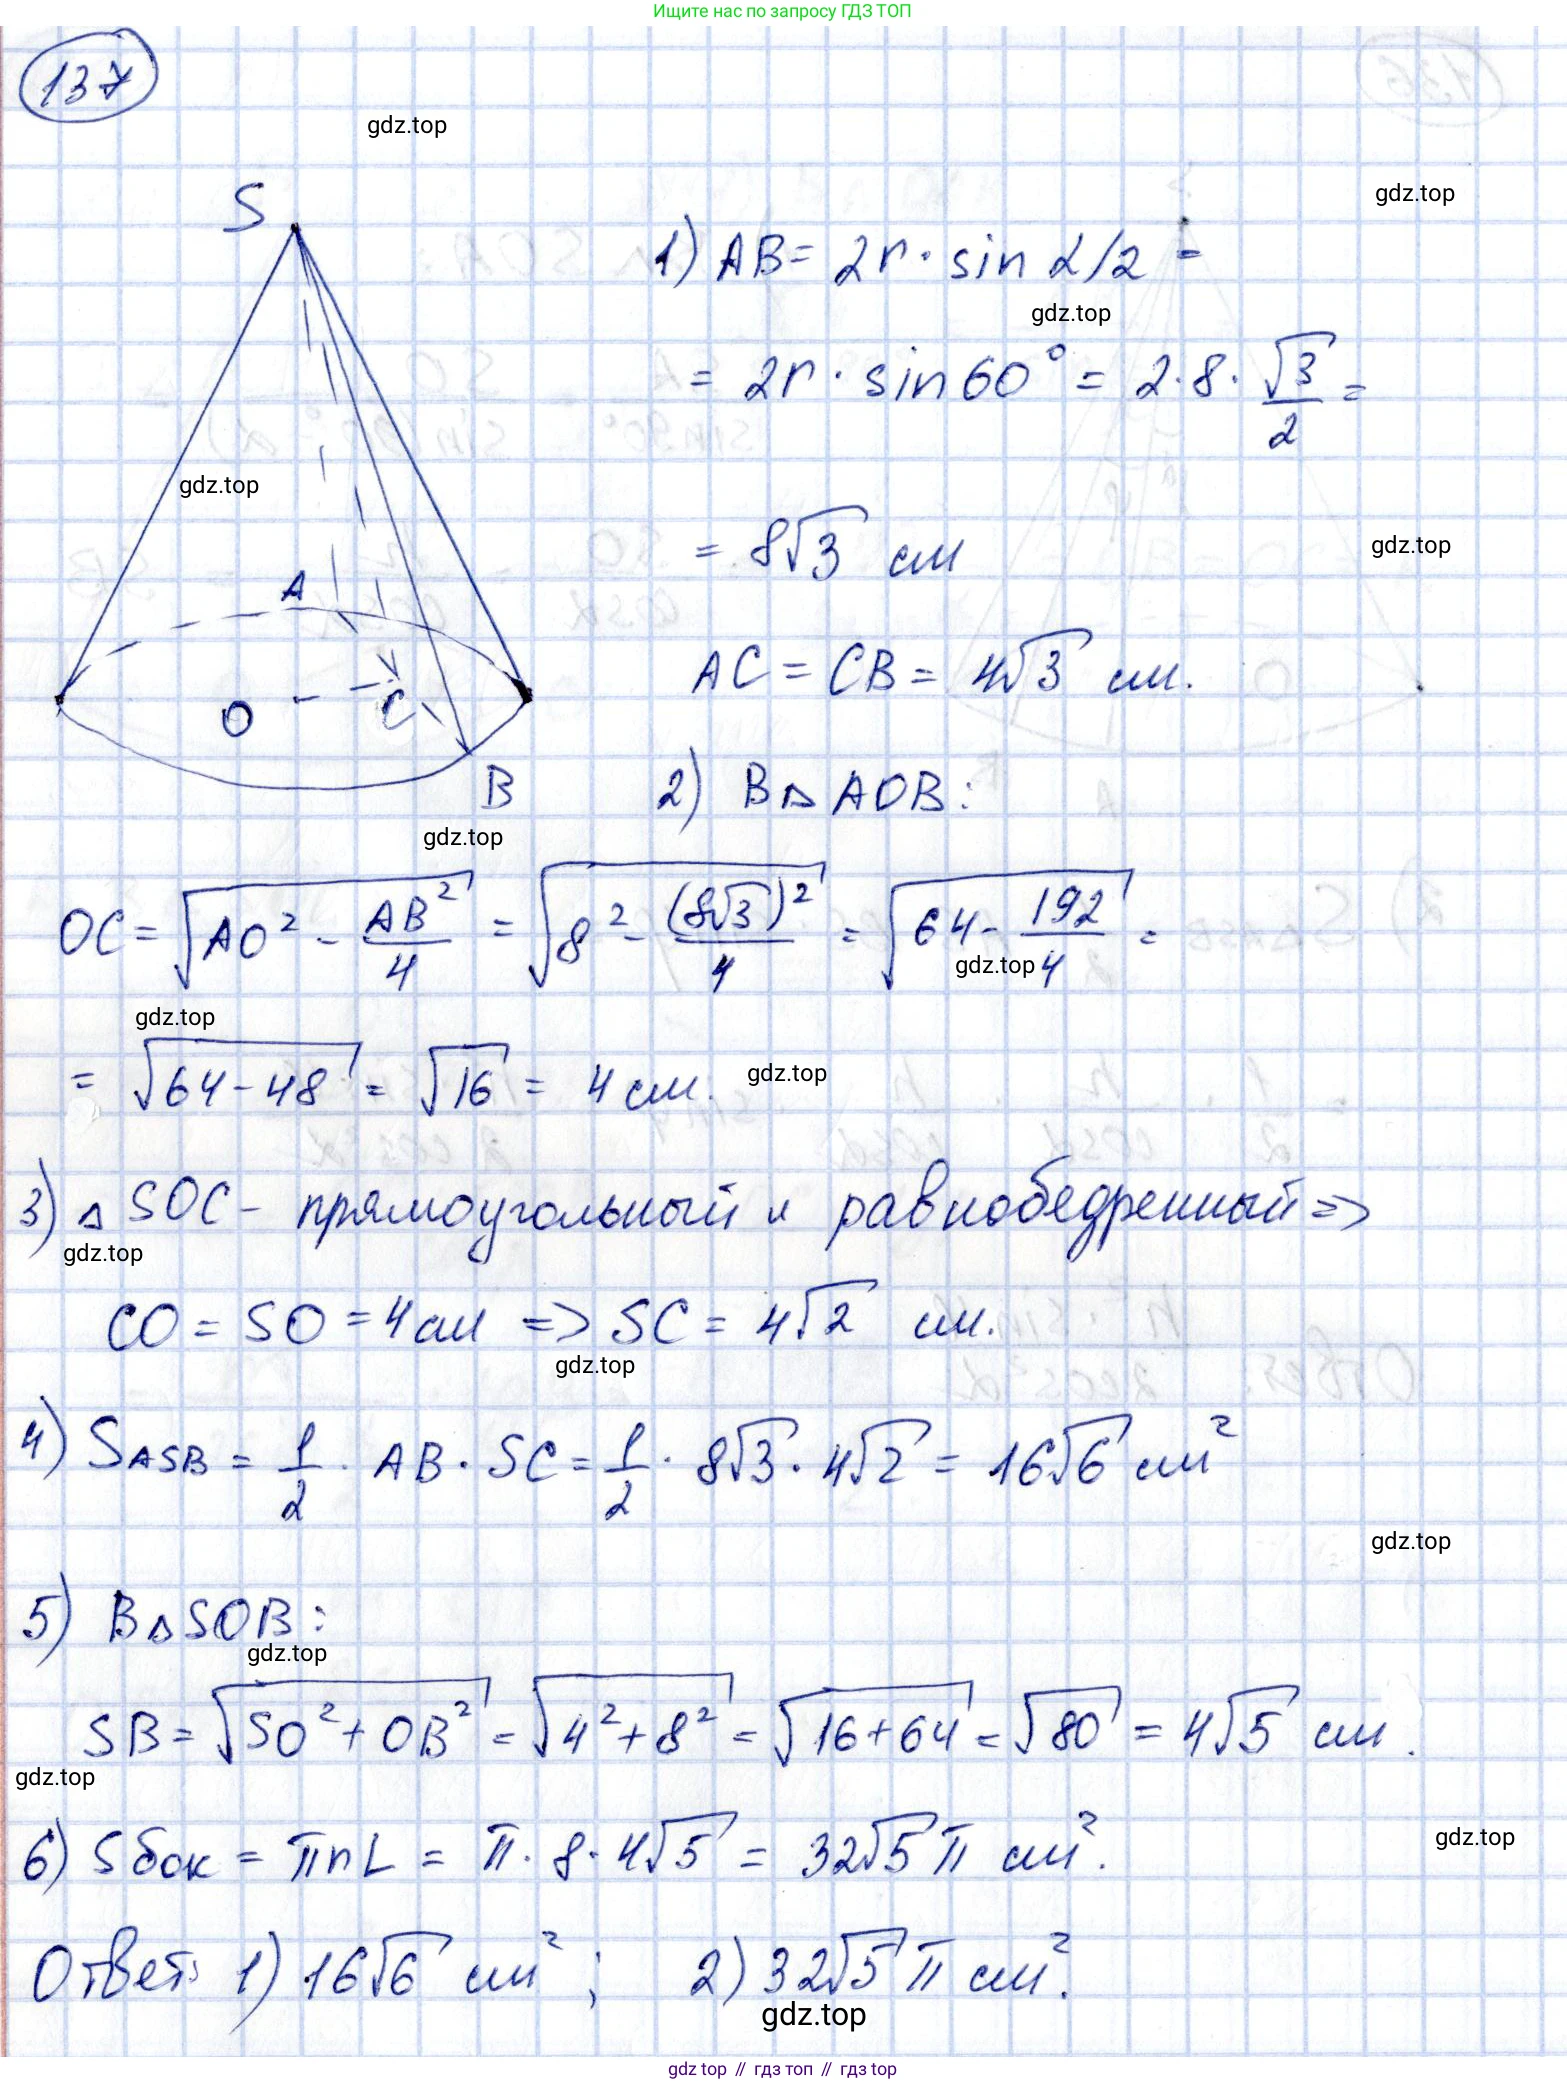 Ищите нас по запросу ГДЗ ТОП
137
gdz.top
gdz.top
S
1) AB = 2r · sin α/2 =
gdz.top
= 2r · sin 60° = 2 · 8 · √3/2 =
gdz.top
= 8√3 см
gdz.top
A
AC = CB = 4√3 см.
O
C
B
2) В △ AOB:
gdz.top
OC = √(AO² - AB²/4) = √(8² - (8√3)²/4) = √(64 - 192/4) =
gdz.top
gdz.top
= √(64 - 48) = √16 = 4 см.
gdz.top
3) △ SOC - прямоугольный и равнобедренный =>
gdz.top
CO = SO = 4 см => SC = 4√2 см.
gdz.top
4) SASB = 1/2 · AB · SC = 1/2 · 8√3 · 4√2 = 16√6 см²
gdz.top
5) В △ SOB:
gdz.top
SB = √(SO² + OB²) = √(4² + 8²) = √(16 + 64) = √80 = 4√5 см.
gdz.top
6) Sбок = πrL = π · 8 · 4√5 = 32√5 π см².
gdz.top
Ответ: 1) 16√6 см²; 2) 32√5 π см².
gdz.top
gdz.top // гдз топ // гдз top